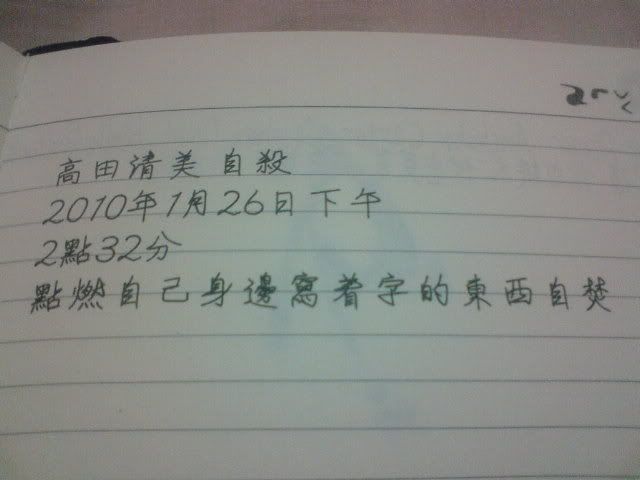 高田清美 自殺
2010年1月26日下午
2點32分
點燃自己身邊寫着字的東西自焚